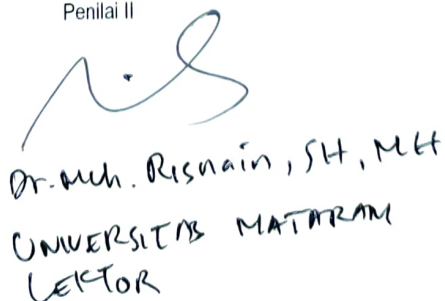 Penilai II
Dr. Muh. Risnain, SH, MH
UNIVERSITAS MATARAM
LEKTOR